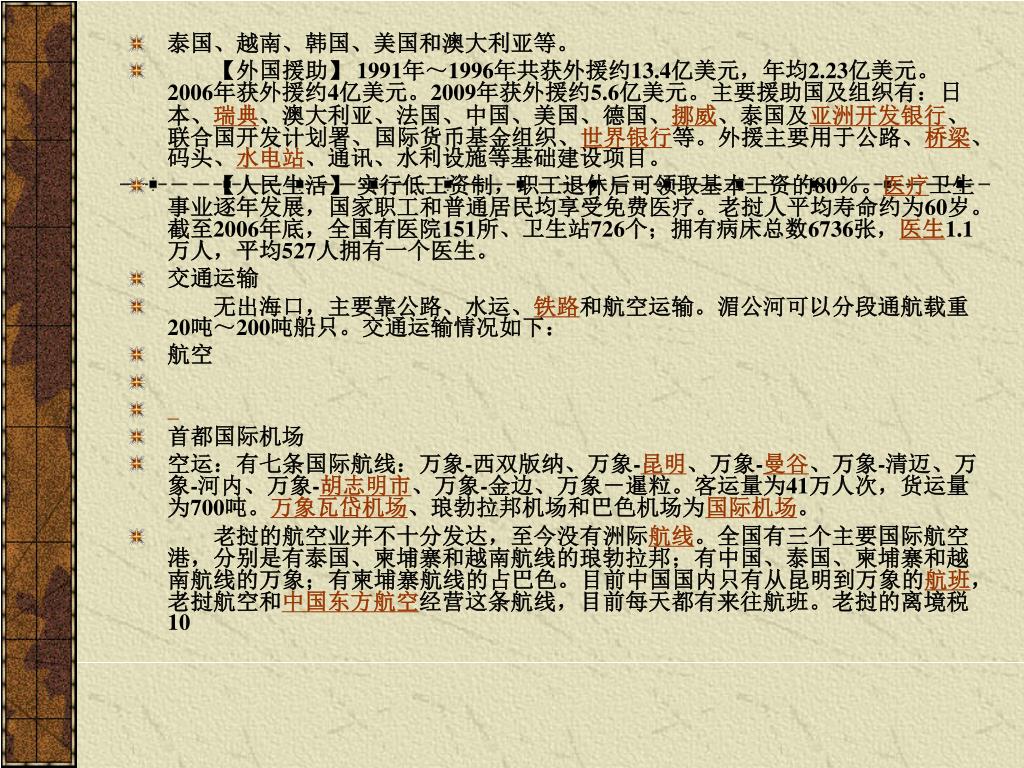 泰国、越南、韩国、美国和澳大利亚等。
【外国援助】 1991年～1996年共获外援约13.4亿美元，年均2.23亿美元。
2006年获外援约4亿美元。2009年获外援约5.6亿美元。主要援助国及组织有：日
本、瑞典、澳大利亚、法国、中国、美国、德国、挪威、泰国及亚洲开发银行、
联合国开发计划署、国际货币基金组织、世界银行等。外援主要用于公路、桥梁、
码头、水电站、通讯、水利设施等基础建设项目。
【人民生活】 实行低工资制，职工退休后可领取基本工资的80％。医疗卫生
事业逐年发展，国家职工和普通居民均享受免费医疗。老挝人平均寿命约为60岁。
截至2006年底，全国有医院151所、卫生站726个；拥有病床总数6736张，医生1.1
万人，平均527人拥有一个医生。
交通运输
无出海口，主要靠公路、水运、铁路和航空运输。湄公河可以分段通航载重
20吨～200吨船只。交通运输情况如下：
航空
首都国际机场
空运：有七条国际航线：万象-西双版纳、万象-昆明、万象-曼谷、万象-清迈、万
象-河内、万象-胡志明市、万象-金边、万象－暹粒。客运量为41万人次，货运量
为700吨。万象瓦岱机场、琅勃拉邦机场和巴色机场为国际机场。
老挝的航空业并不十分发达，至今没有洲际航线。全国有三个主要国际航空
港，分别是有泰国、柬埔寨和越南航线的琅勃拉邦；有中国、泰国、柬埔寨和越
南航线的万象；有柬埔寨航线的占巴色。目前中国国内只有从昆明到万象的航班，
老挝航空和中国东方航空经营这条航线，目前每天都有来往航班。老挝的离境税
10